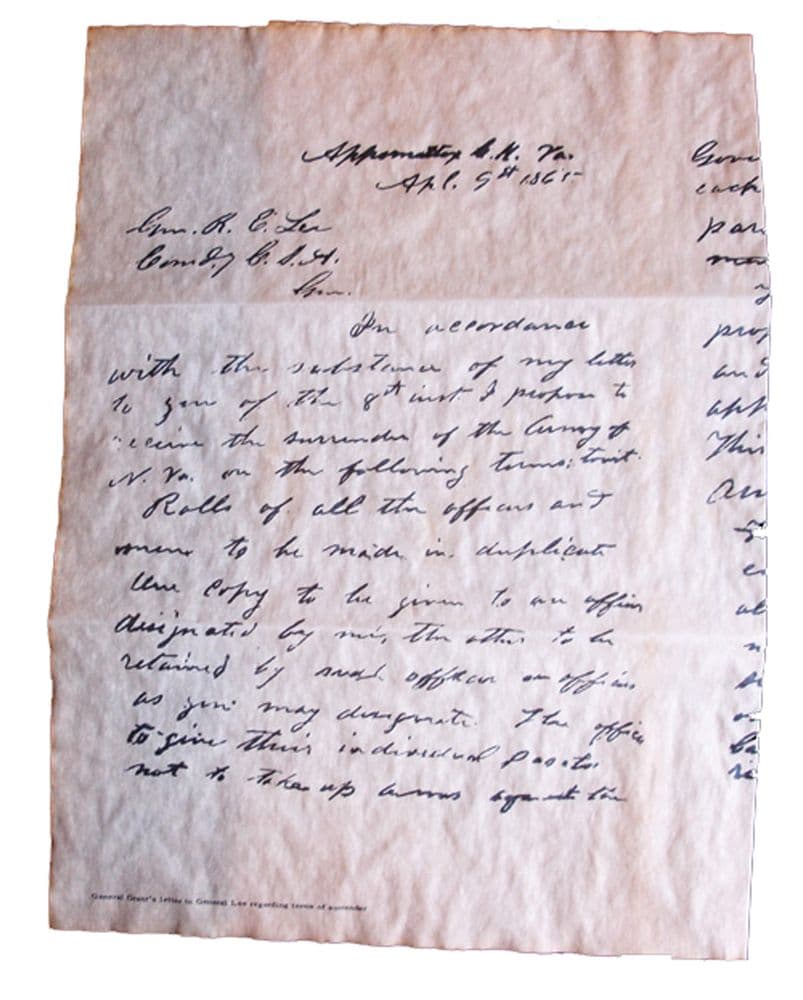 Appomattox C. H. Va.
Apl. 9th 1865
Gen. R. E. Lee
Comd.g C. S. A.
Gen.
In accordance
with the substance of my letter
to you of the 8th inst. I propose to
receive the surrender of the Army of
N. Va. on the following terms: towit:
Rolls of all the officers and
men to be made in duplicate
One copy to be given to an officer
designated by me, the other to be
retained by such officer or officers
as you may designate. The officers
to give their individual paroles
not to take up arms against the
Gove
each
par
prop
and
app
This
General Grant's letter to General Lee regarding terms of surrender